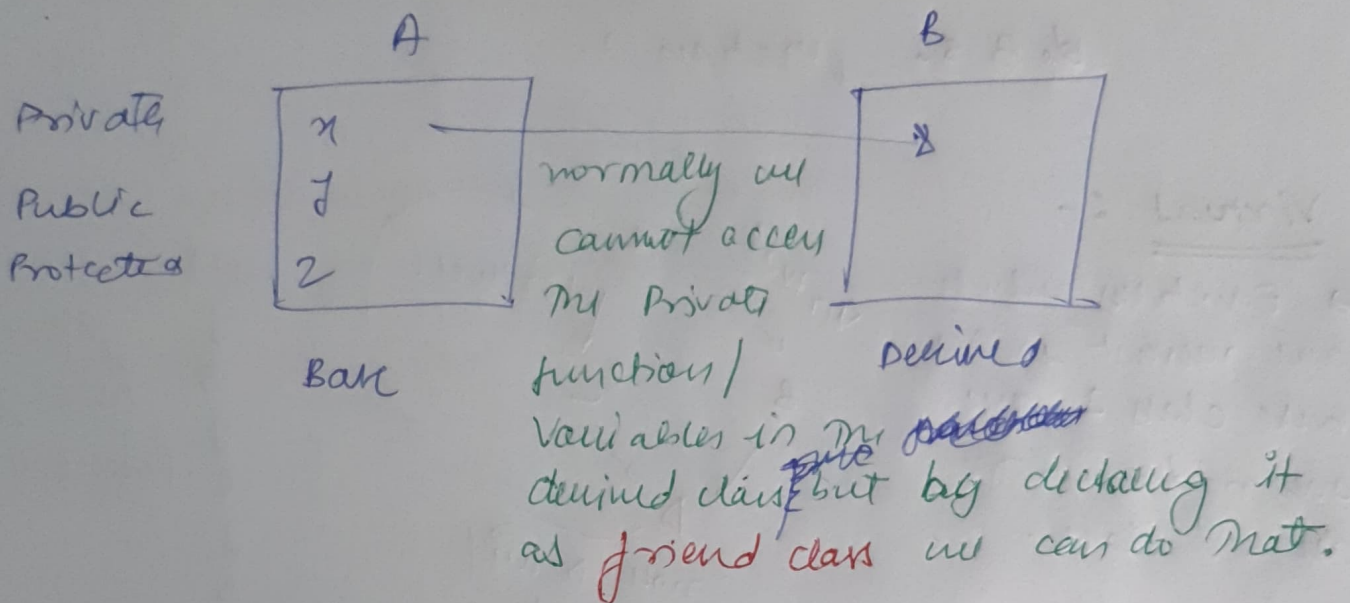 A B
Private x
Public y
Protected z
Base Derived
normally we
cannot access
the Private
function/
variables in the
derived class but by declaring it
as friend class we can do that.